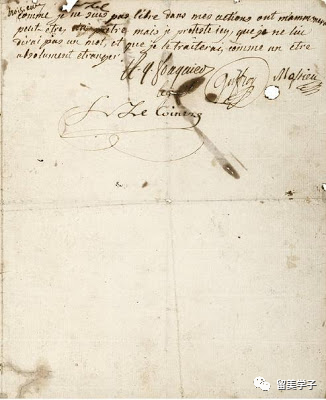 comme je ne suis pas libre dans mes actions ont m'amenera
peut être, un prêtre, mais je proteste icy, que je ne lui
dirai pas un mot, et que je le traiterai, comme un être
absolument étranger.
A. Q. Fouquier Guffroy Massieu
L. Le Cointre
留美学子